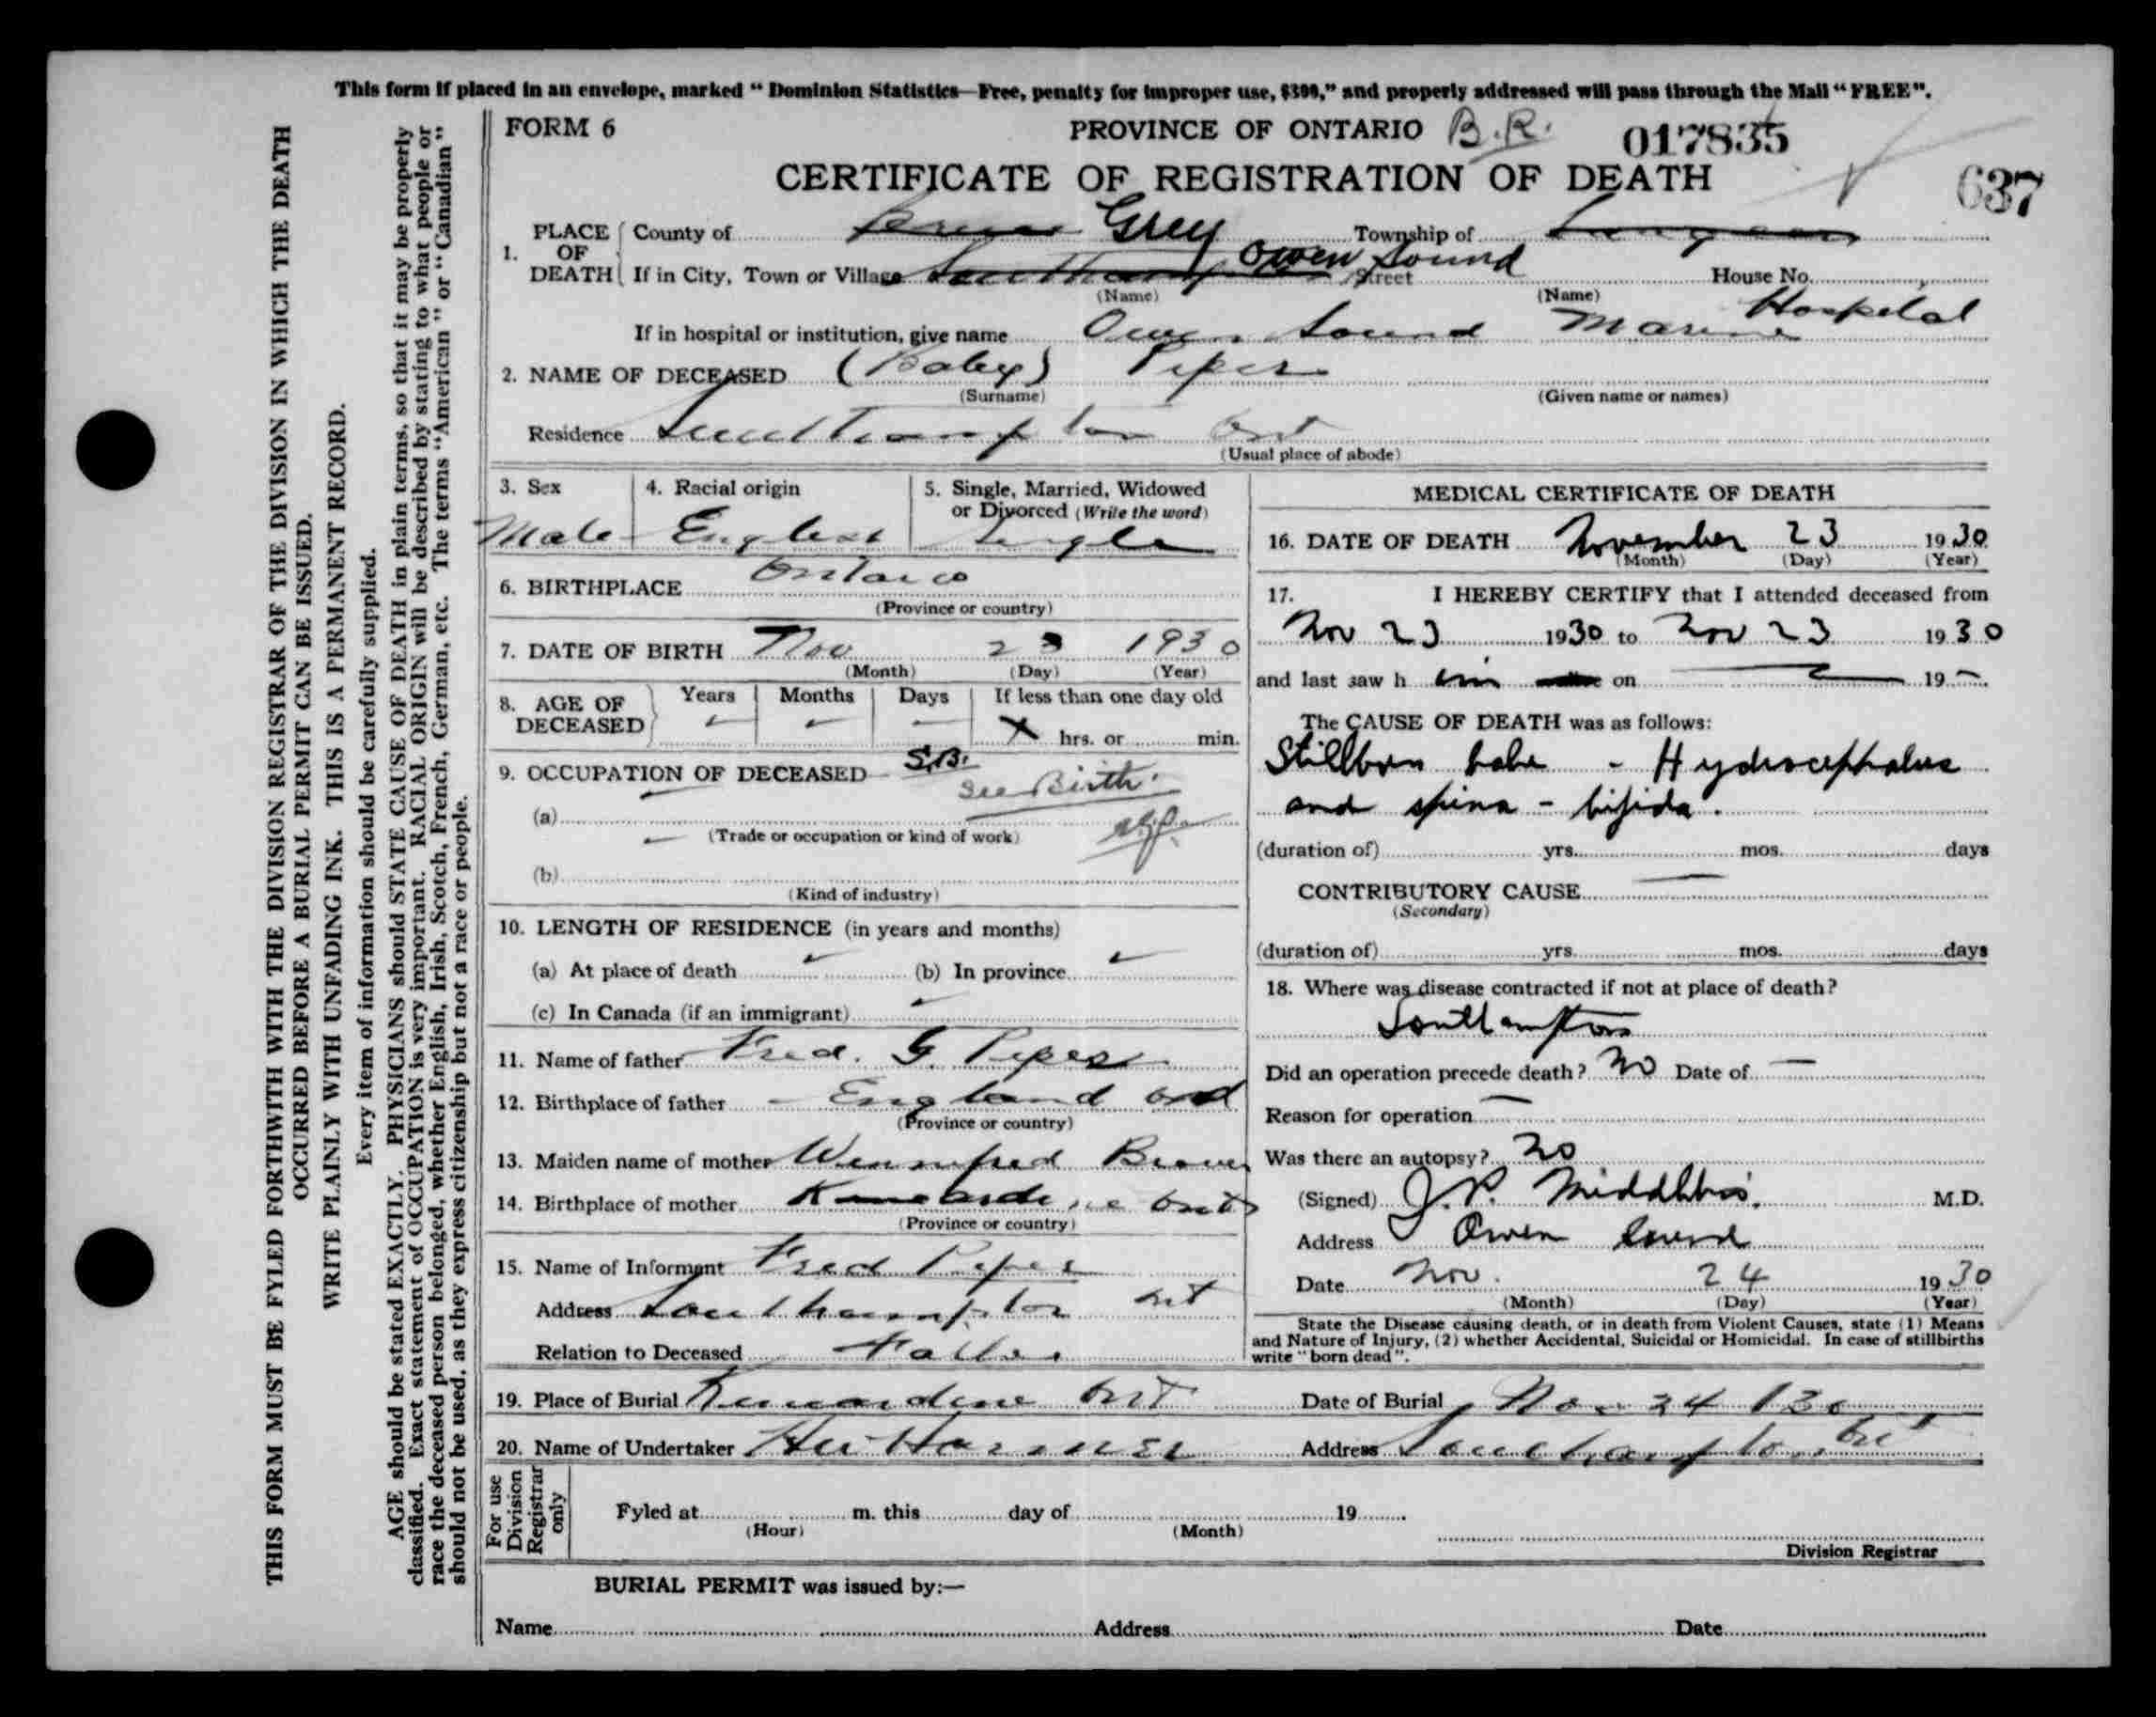 This form if placed in an envelope, marked " Dominion Statistics—Free, penalty for improper use, $300," and properly addressed will pass through the Mail "FREE".
FORM 6 PROVINCE OF ONTARIO B.R. 017835
637
CERTIFICATE OF REGISTRATION OF DEATH
1. PLACE OF DEATH County of Grey Township of
If in City, Town or Village Owen Sound Street House No.
(Name) (Name)
If in hospital or institution, give name Owen Sound Marine Hospital
2. NAME OF DECEASED (Baby) Piper
(Surname) (Given name or names)
Residence Southampton Ont
(Usual place of abode)
3. Sex Male
4. Racial origin English
5. Single, Married, Widowed or Divorced (Write the word) Single
6. BIRTHPLACE Ontario
(Province or country)
7. DATE OF BIRTH Nov 23 1930
(Month) (Day) (Year)
8. AGE OF DECEASED Years Months Days If less than one day old
X hrs. or min.
9. OCCUPATION OF DECEASED S.B.
See Birth
(a)
(Trade or occupation or kind of work)
(b)
(Kind of industry)
10. LENGTH OF RESIDENCE (in years and months)
(a) At place of death (b) In province
(c) In Canada (if an immigrant)
11. Name of father Fred. G. Piper
12. Birthplace of father England
(Province or country)
13. Maiden name of mother Winnifred
14. Birthplace of mother Kincardine Ont
(Province or country)
15. Name of Informant Fred Piper
Address Southampton Ont
Relation to Deceased Father
MEDICAL CERTIFICATE OF DEATH
16. DATE OF DEATH November 23 1930
(Month) (Day) (Year)
17. I HEREBY CERTIFY that I attended deceased from
Nov 23 1930 to Nov 23 1930
and last saw h im on 19
The CAUSE OF DEATH was as follows:
Stillborn babe - Hydrocephalus
and spina - bifida.
(duration of) yrs. mos. days
CONTRIBUTORY CAUSE
(Secondary)
(duration of) yrs. mos. days
18. Where was disease contracted if not at place of death?
Southampton
Did an operation precede death? No Date of
Reason for operation
Was there an autopsy? No
(Signed) M.D.
Address Owen Sound
Date Nov. 24 1930
(Month) (Day) (Year)
State the Disease causing death, or in death from Violent Causes, state (1) Means
and Nature of Injury, (2) whether Accidental, Suicidal or Homicidal. In case of stillbirths
write "born dead".
19. Place of Burial Kincardine Ont Date of Burial Nov 24 /30
20. Name of Undertaker Address Southampton, Ont
For use Division Registrar only
Fyled at m. this day of 19
(Hour) (Month)
Division Registrar
BURIAL PERMIT was issued by:—
Name Address Date
THIS FORM MUST BE FYLED FORTHWITH WITH THE DIVISION REGISTRAR OF THE DIVISION IN WHICH THE DEATH
OCCURRED BEFORE A BURIAL PERMIT CAN BE ISSUED.
WRITE PLAINLY WITH UNFADING INK. THIS IS A PERMANENT RECORD.
Every item of information should be carefully supplied.
AGE should be stated EXACTLY. PHYSICIANS should STATE CAUSE OF DEATH in plain terms, so that it may be properly
classified. Exact statement of OCCUPATION is very important. RACIAL ORIGIN will be described by stating to what people or
race the deceased person belonged, whether English, Irish, Scotch, French, German, etc. The terms "American" or "Canadian"
should not be used, as they express citizenship but not a race or people.